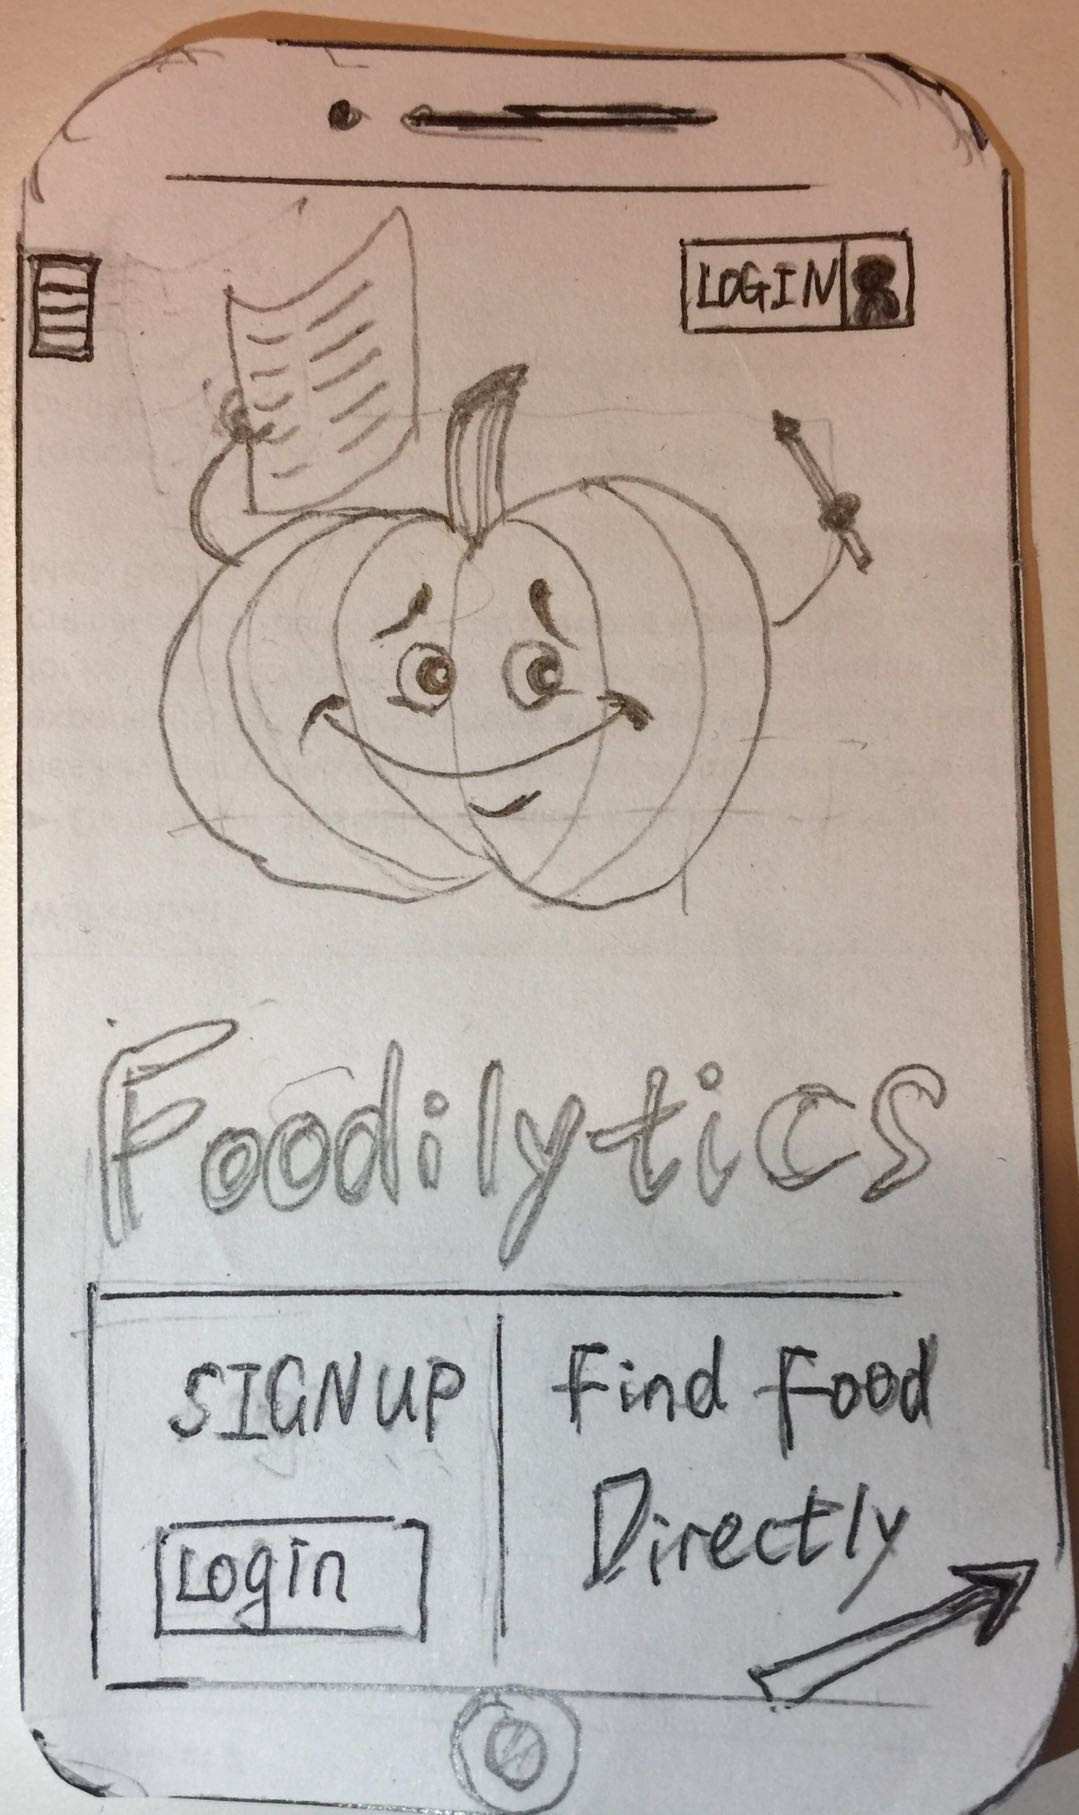 LOGIN
Foodilytics
SIGNUP
Login
Find Food
Directly